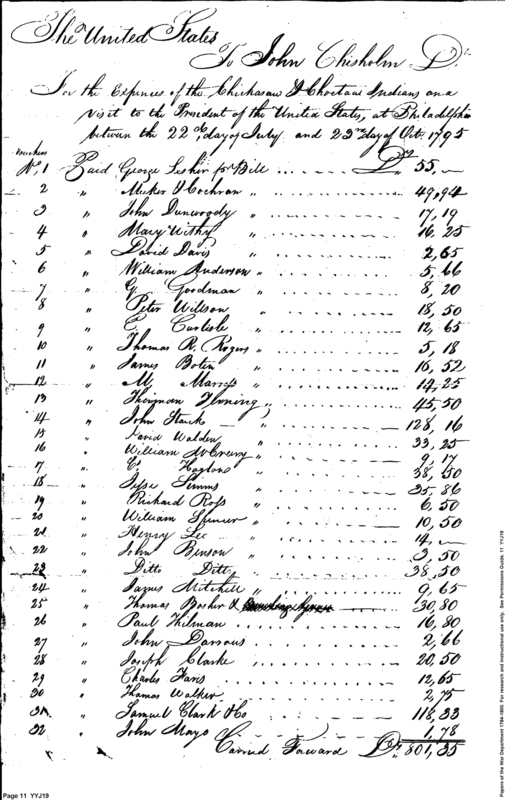 The United States
To John Chisholm Dr.
For the Expences of the Chickasaw & Choctaw Indians on a
visit to the President of the United States, at Philadelphia
between the 22nd day of July and 23rd day of Oct. 1795
Vouchers
No, 1 Paid George Lesher pr Bill ........ Drs 55,—
2 " Meeker & Cochran " ........ 49,94
3 " John Dunwoody " ........ 17,19
4 " Mary Withy " ........ 16,25
5 " David Davis " ........ 2,65
6 " William Anderson " ........ 5,66
7 " G. Goodman " ........ 8,20
8 " Peter Willson " ........ 18,50
9 " C. Carlisle " ........ 12,65
10 " Thomas R. Rogers " ........ 5,18
11 " James Boten " ........ 16,52
12 " M. ........ 14,25
13 " ........ 45,50
14 " John — " ........ 128,16
15 " David Walden " ........ 33,25
16 " William McCreery " ........ 9,17
17 " ........ 38,50
18 " Jesse Simms " ........ 35,86
19 " Richard Ross " ........ 6,50
20 " William Spencer " ........ 10,50
21 " Henry Lee " ........ 14,—
22 " John Benson " ........ 3,50
23 " Ditto Ditto " ........ 38,50
24 " James Mitchell " ........ 9,65
25 " Thomas Bosher & ........ 30,80
26 " Paul Thilman ........ 16,80
27 " John Darrous ........ 2,66
28 " Joseph Clarke ........ 20,50
29 " Charles Faris ........ 12,65
30 " Thomas Walker ........ 2,75
31 " Samuel Clark & Co ........ 118,33
32 " John Mayo ........ 1,78
Carried Forward Drs 801,35
Page 11 YYJ19
Papers of the War Department 1784-1800. For research and instructional use only. See Permissions Guide. 11 YYJ19